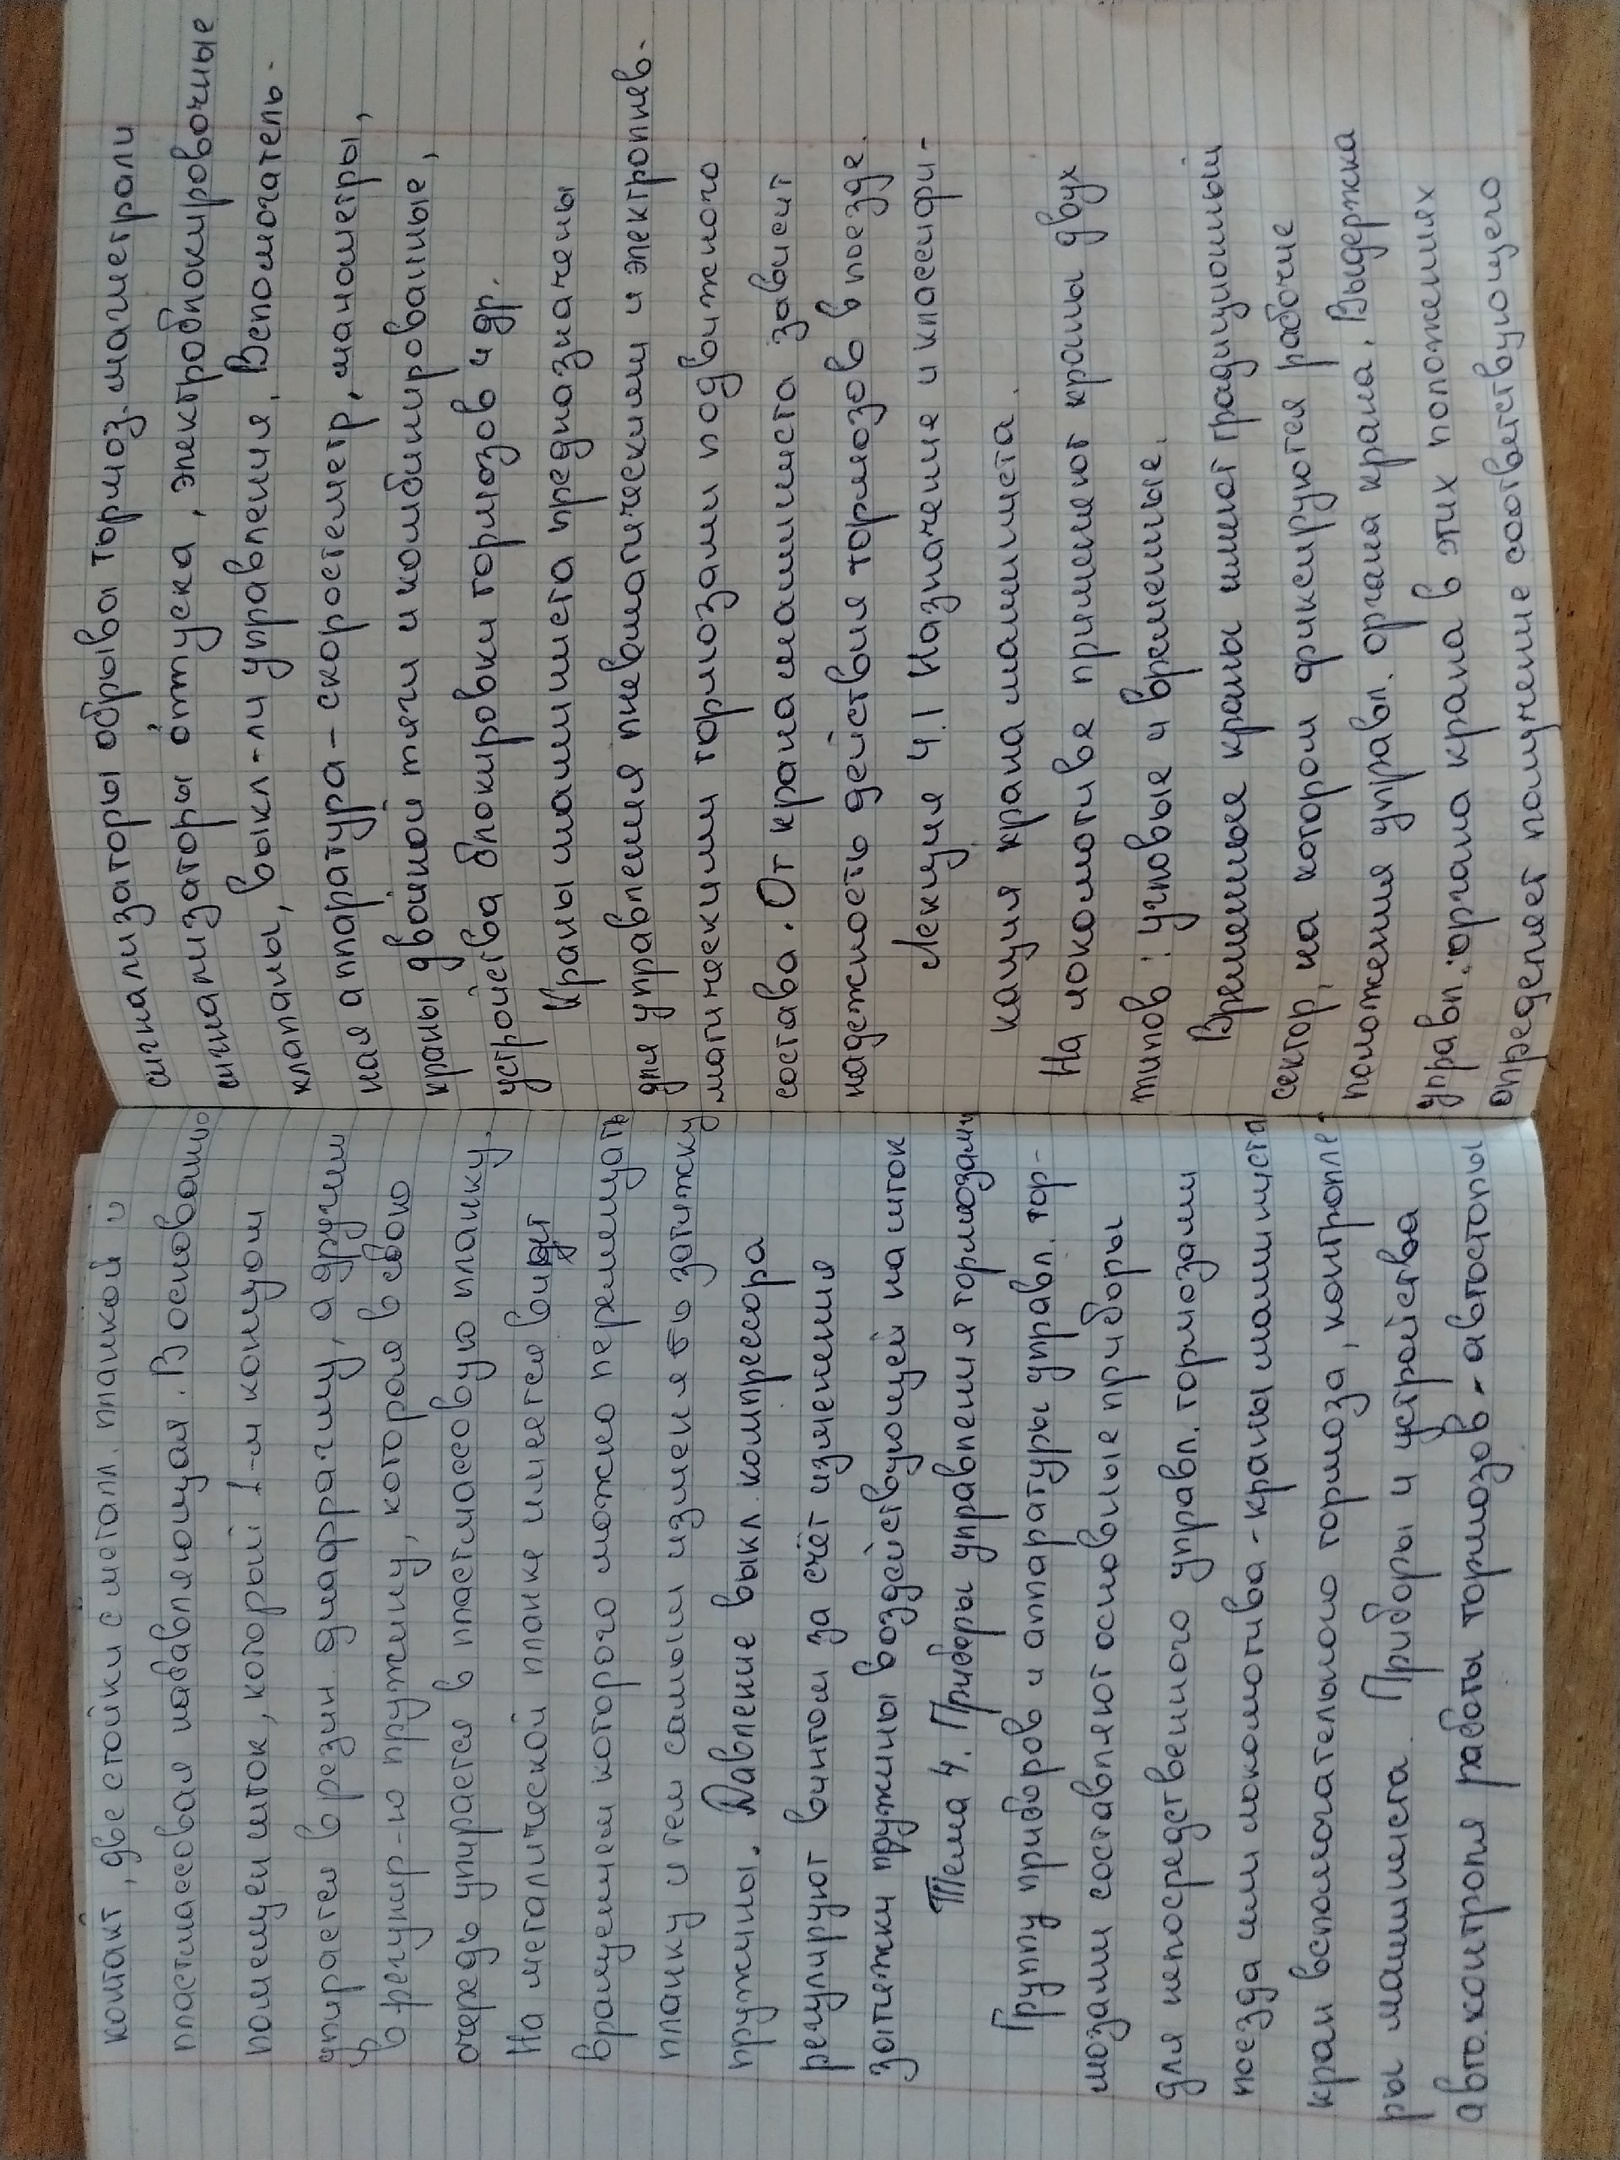 контакт, две стойки с металл. планкой и
пластмасовая направляющая. В основанию
помещен шток, который 1-м концом
упирается в резин. диафрагму, а другим
в регулир-ю пружину, которая в свою
очередь упирается в пластмассовую планку.
На металической планке имеется винт
вращением которого можно перемещать
планку и тем самым изменять затяжку
пружины. Давление выкл. компрессора
регулируют винтом за счёт изменения
затяжки пружины воздействующей на шток
Тема 4. Приборы управления тормозами
Группу приборов и аппаратуры управл. тор-
мозами составляют основные приборы
для непосредственного управл. тормозами
поезда или локомотива - краны машиниста
кран вспомогательного тормоза, контролле-
ры машиниста. Приборы и устройства
авто. контроля работы тормозов - автостопы
сигнализаторы обрывы тормоз. магистрали
сигнализаторы отпуска, электроблокировочные
клапаны, выкл-ли управления. Вспомогатель-
ная аппаратура - скоростемер, манометры,
краны двойной тяги и комбинированные,
устройства блокировки тормозов и др.
Краны машиниста предназначены
для управления пневматическими и электропнев-
матическими тормозами подвижного
состава. От крана машиниста зависит
надежность действия тормозов в поезде.
Лекция 4.1 Назначение и классифи-
кация крана машиниста.
На локомотиве применяют краны двух
типов: угловые и временные.
Временные краны имеют традиционный
сектор, на котором фиксируются рабочие
положения управл. органа крана. Выдержка
управл. органа крана в этих положениях
определяет получение соответствующего